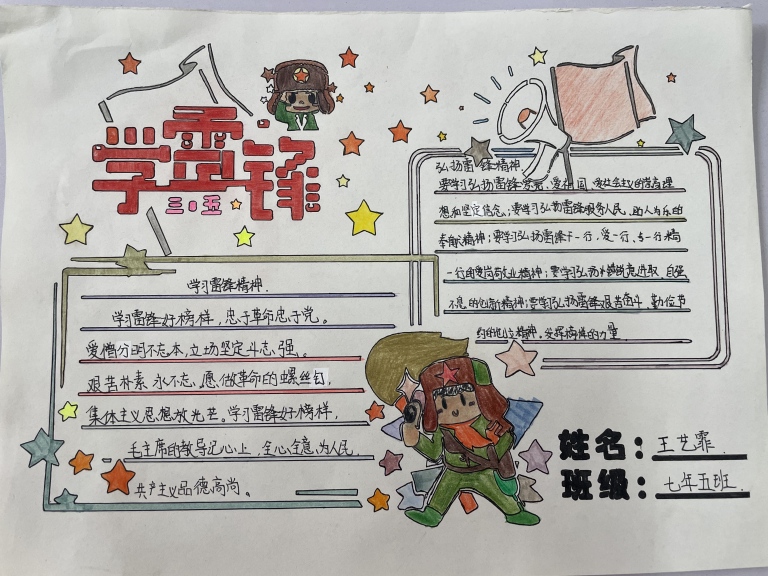 学雷锋
三·五
学习雷锋精神.
学习雷锋好榜样，忠于革命忠于党。
爱憎分明不忘本，立场坚定斗志强。
艰苦朴素永不忘，愿做革命的螺丝钉，
集体主义思想放光芒。学习雷锋好榜样，
毛主席的教导记心上，全心全意为人民，
共产主义品德高尚。
弘扬雷锋精神.
要学习弘扬雷锋爱党、爱祖国、爱社会主义的崇高理
想和坚定信念；要学习弘扬雷锋服务人民、助人为乐的
奉献精神；要学习弘扬雷锋干一行、爱一行、专一行精
一行的爱岗敬业精神；要学习弘扬锐意进取、自强
不息的创新精神；要学习弘扬雷锋艰苦奋斗、勤俭节
约的创业精神，发挥榜样的力量.
姓名：王艺霏.
班级：七年五班.